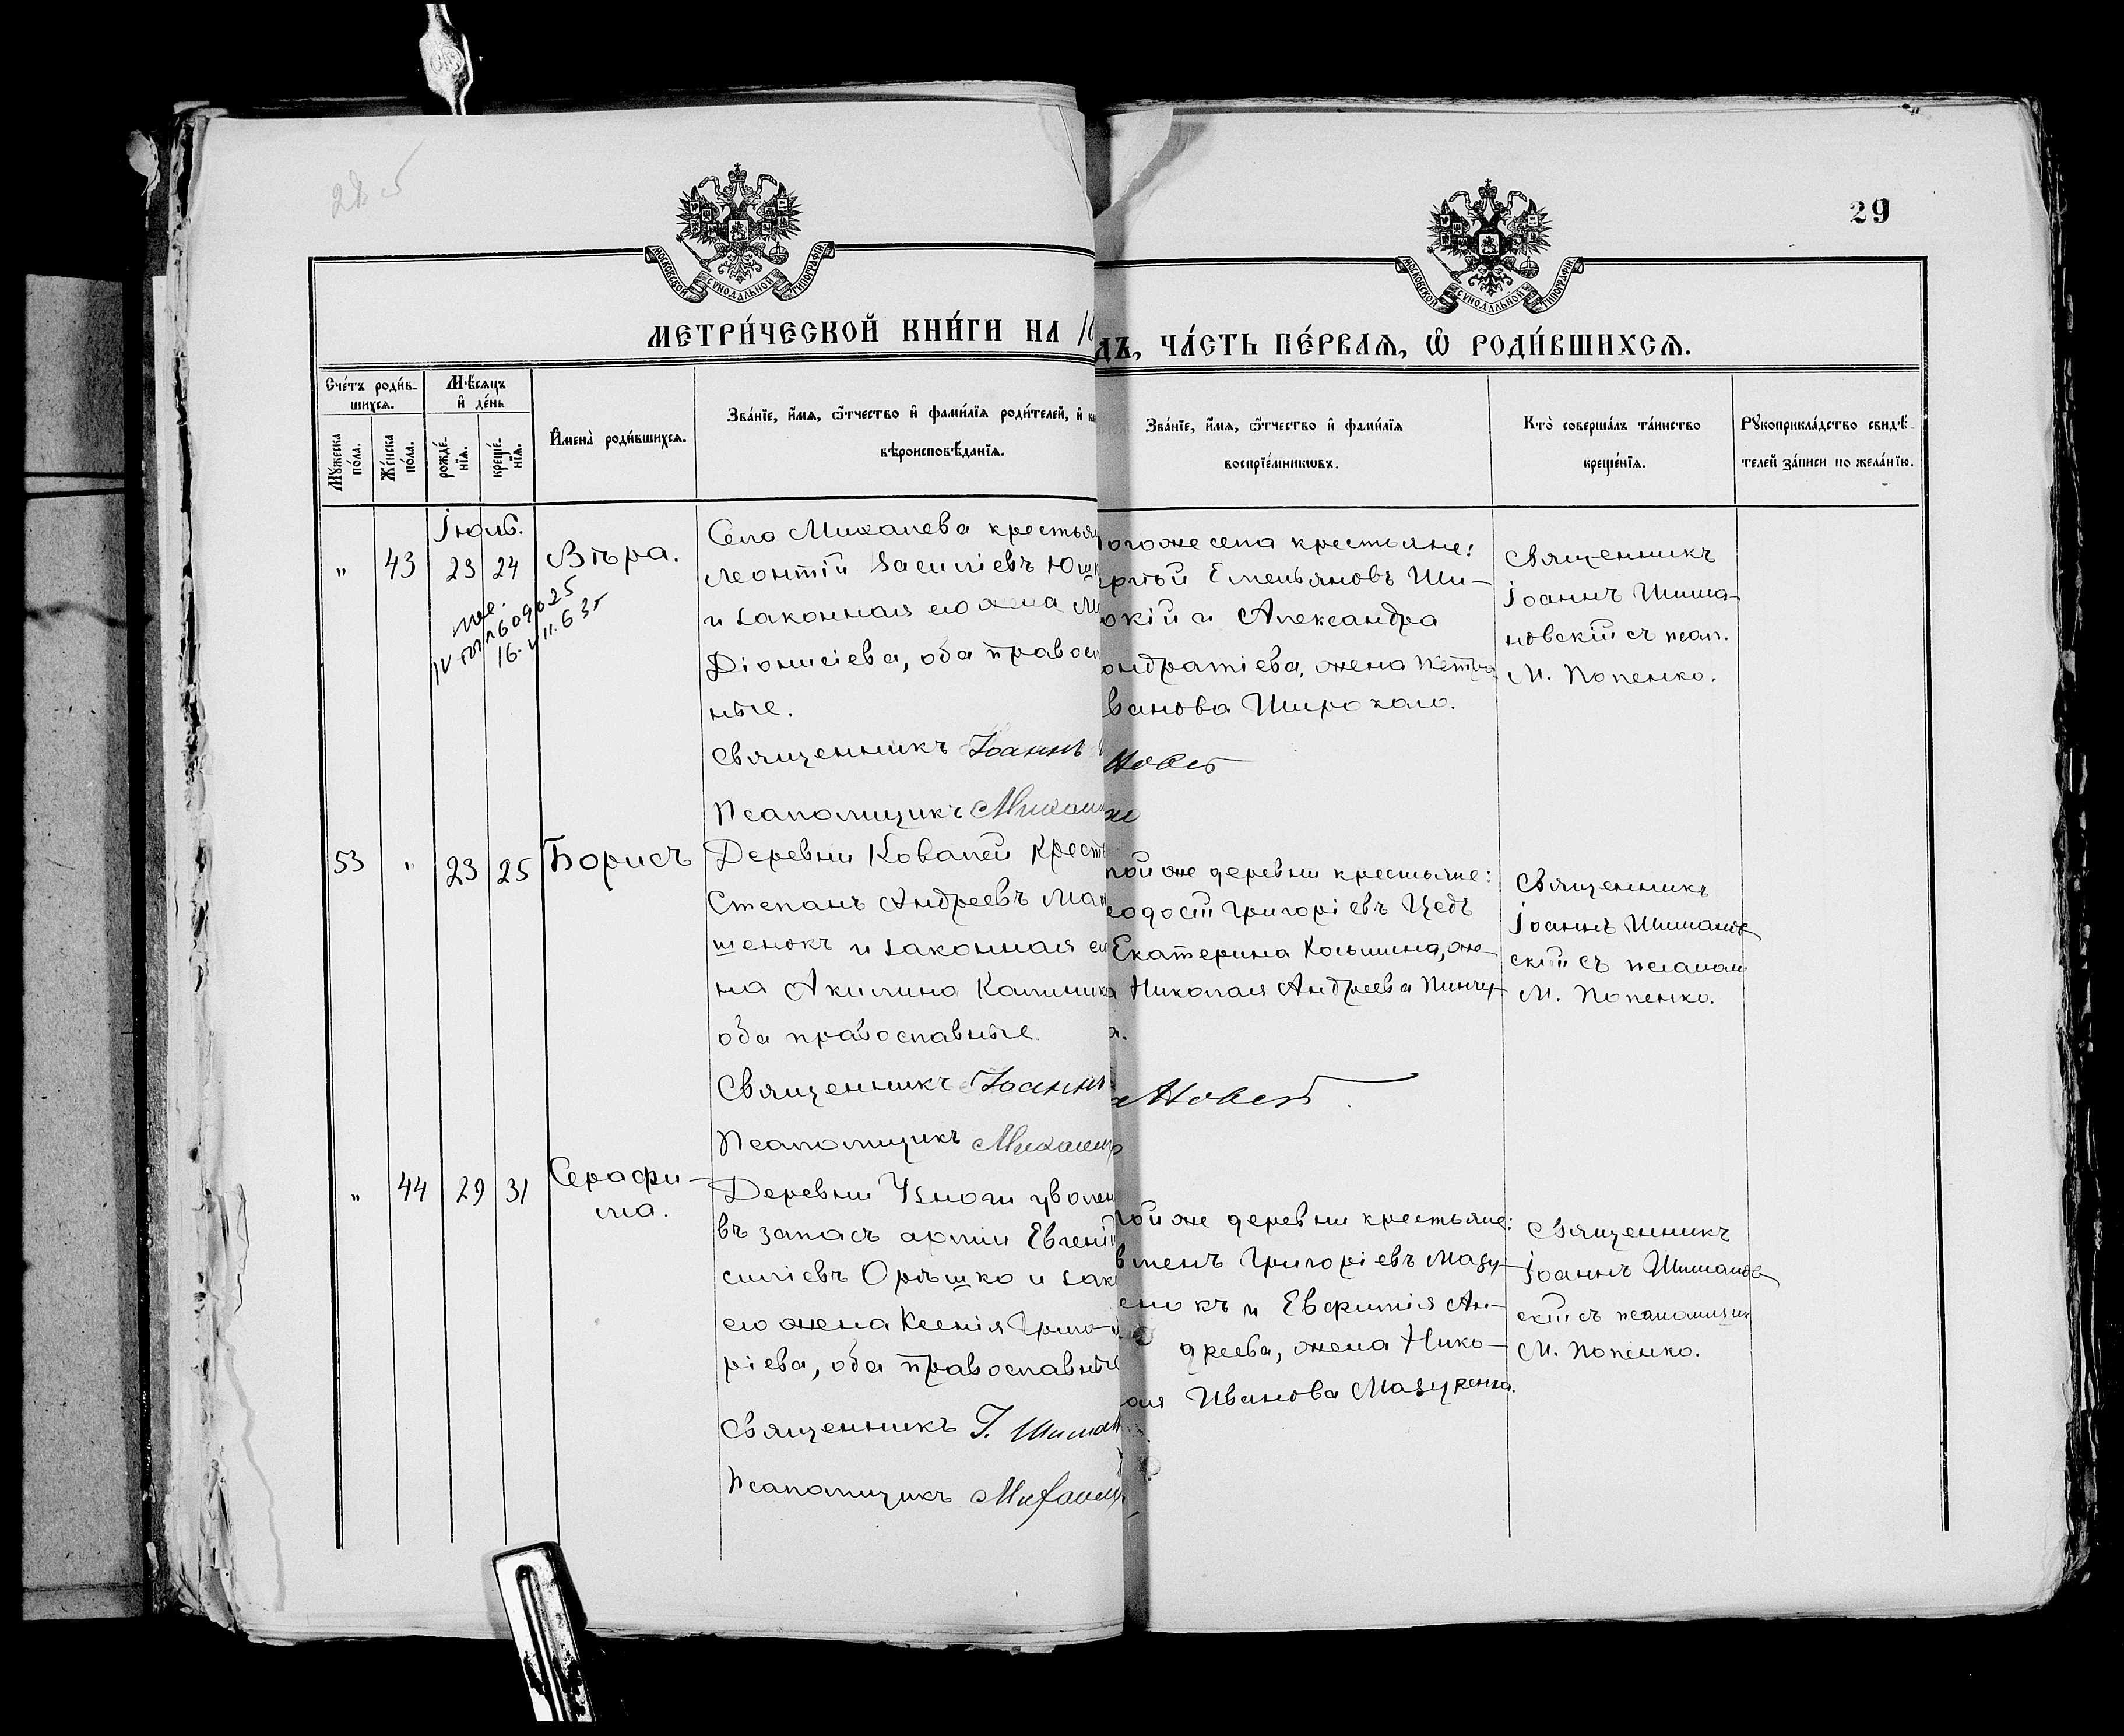 29
МОСКОВСКОЙ СУНОДАЛЬНОЙ ТИПОГРАФІИ
МОСКОВСКОЙ СУНОДАЛЬНОЙ ТИПОГРАФІИ
МЕТРИ́ЧЕСКОЙ КНИ́ГИ НА
дъ, ЧА́СТЬ ПЕ́РВАѦ, Ѡ҆ РОДИ́ВШИХСѦ.
Сче́тъ роди́в-
шихсѧ.
Мꙋ́жеска
по́ла.
Же́нска
по́ла.
Мѣ́сѧцъ
и҆ де́нь
рожде́-
нїѧ.
креще́-
нїѧ.
И҆мена̀ роди́вшихсѧ.
Зва́нїе, и҆́мѧ, ѻ҆́тчество и҆ фами́лїѧ роди́телей, и҆
вѣроисповѣ́данїѧ.
Зва́нїе, и҆́мѧ, ѻ҆́тчество и҆ фами́лїѧ
воспрїе́мникѡвъ.
Кто̀ соверша́лъ та́инство
креще́нїѧ.
Рꙋкоприкла́дство свидѣ́-
телей за́писи по жела́нїю.
Іюль.
" 43 23 24 Вѣра.
16.VII.63г
Села Михалева крестья
Леонтій Василіевъ Юш
и законная его жена М
Діонисіева, оба правосл
ные.
Священникъ Іоаннъ
Псаломщикъ Михаил
огоже села крестьяне:
ргѣй Емельяновъ Ши-
окій и Александра
ондратіева, жена Петра
ванова Широкаго.
новск
ко
Священникъ
Іоаннъ Шима-
новскій съ псал.
М. Попенко.
53 " 23 25 Борисъ
Деревни Ковалей Крест
Степанъ Андреевъ Ма
шенокъ и законная ег
на Акилина Калиника
оба православные.
Священникъ Іоаннъ
Псаломщикъ Михаил
той же деревни крестьяне:
еодосій Григоріевъ Цедъ
Екатерина Косьмина, же-
Николая Андреева Пинчу-
а.
новск
Священникъ
Іоаннъ Шиманов
скій съ псалом
М. Попенко.
" 44 29 31 Серафи-
ма.
Деревни Узноги уволен
въ запасъ арміи Евгені
силіевъ Орѣшко и зак
его жена Ксенія Григо-
ріева, оба православные
Священникъ І. Шиман
Псаломщикъ Михаил
той же деревни крестьяне:
втенъ Григоріевъ Мазу-
енокъ и Евфимія Ан-
дреева, жена Нико-
лая Иванова Мазуренка.
Священникъ
Іоаннъ Шиманов
скій съ псаломщик
М. Попенко.